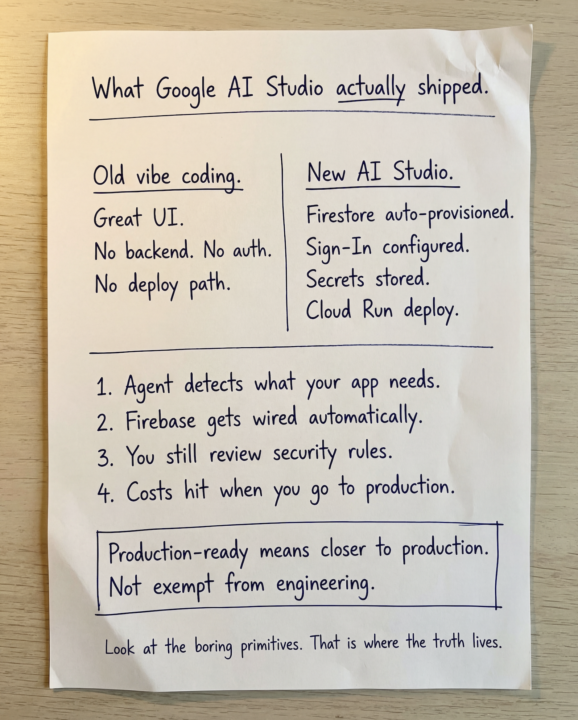 What Google AI Studio actually shipped.
Old vibe coding.
Great UI.
No backend. No auth.
No deploy path.
New AI Studio.
Firestore auto-provisioned.
Sign-In configured.
Secrets stored.
Cloud Run deploy.
1. Agent detects what your app needs.
2. Firebase gets wired automatically.
3. You still review security rules.
4. Costs hit when you go to production.
Production-ready means closer to production.
Not exempt from engineering.
Look at the boring primitives. That is where the truth lives.